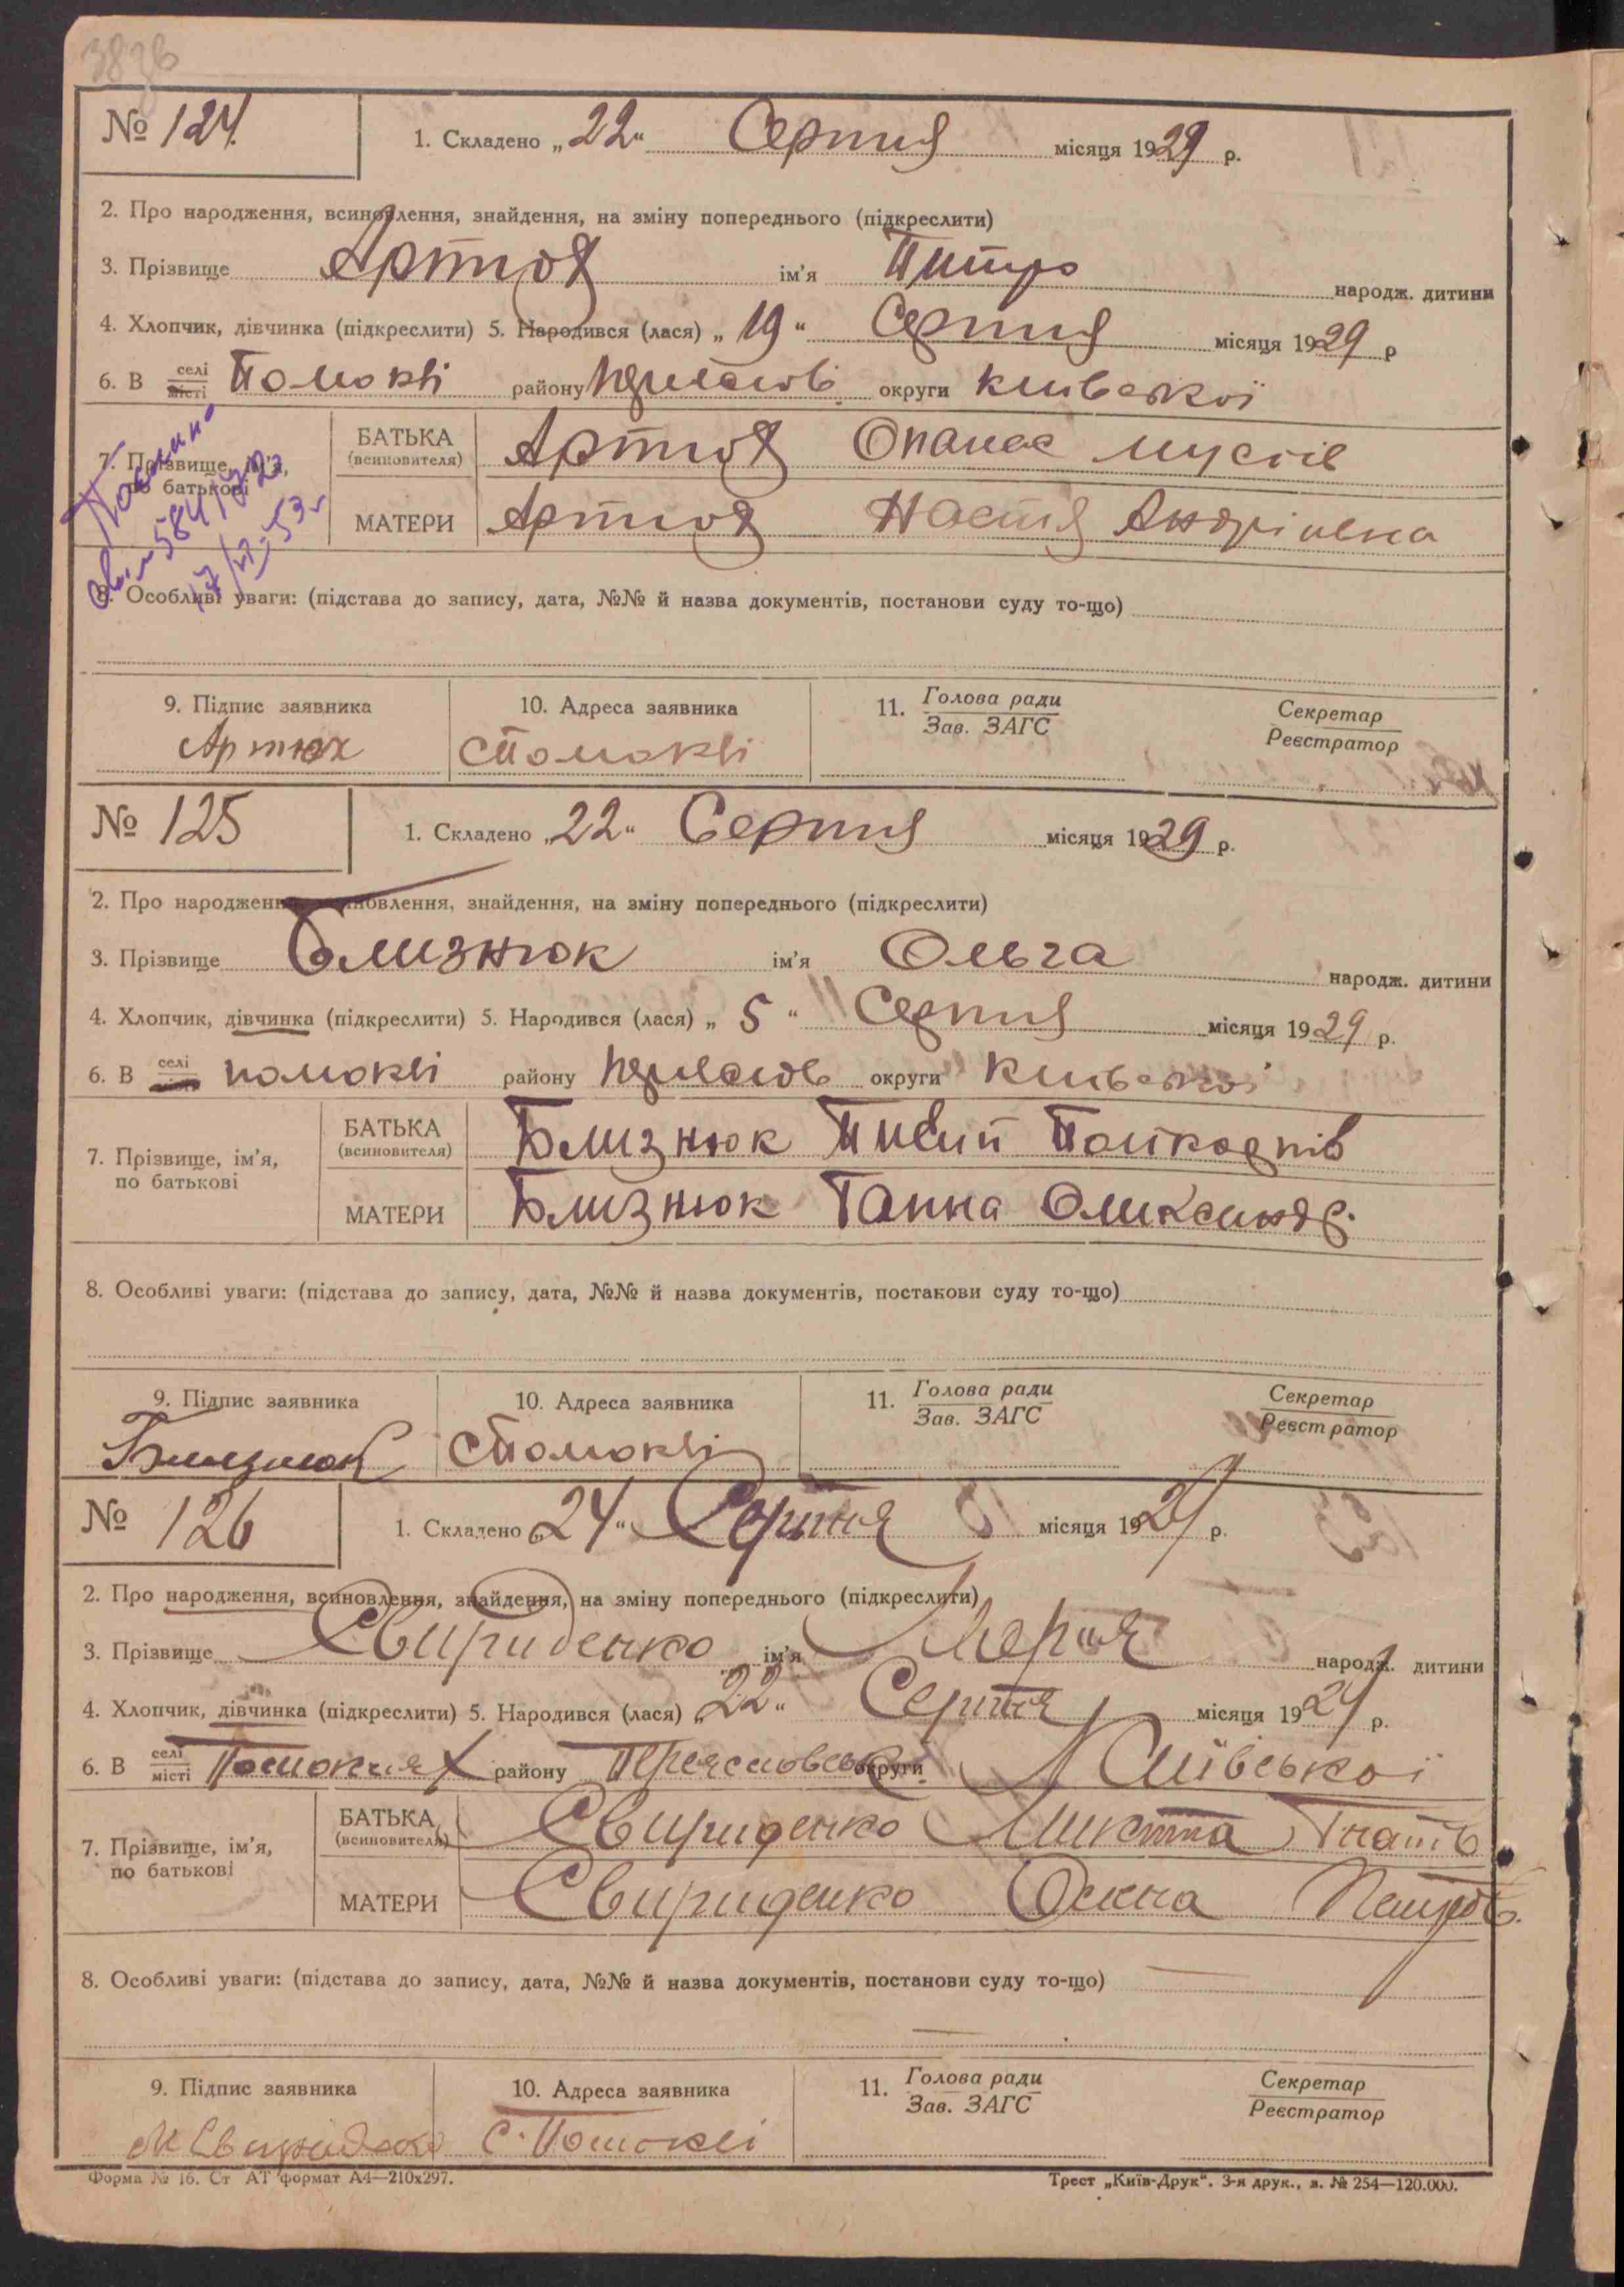 № 124.
1. Складено „22“ Серпня місяця 1929 р.
2. Про народження, всиновлення, знайдення, на зміну попереднього (підкреслити)
3. Прізвище Артюх ім'я Питро народж. дитини
4. Хлопчик, дівчинка (підкреслити) 5. Народився (лася) „19“ Серпня місяця 1929 р
6. В селі місті Помоклі району округи Київської
7. Прізвище, ім'я, по батькові
БАТЬКА (всиновителя) Артюх Опанас Мусіїв
МАТЕРИ Артюх Настя Андріівна
8. Особливі уваги: (підстава до запису, дата, №№ й назва документів, постанови суду то-що)
9. Підпис заявника
Артюх
10. Адреса заявника
с Помоклі
11. Голова ради
Зав. ЗАГС
Секретар
Реєстратор
№ 125
1. Складено „22“ Серпня місяця 1929 р.
2. Про народження, всиновлення, знайдення, на зміну попереднього (підкреслити)
3. Прізвище Близнюк ім'я Ольга народж. дитини
4. Хлопчик, дівчинка (підкреслити) 5. Народився (лася) „5“ Серпня місяця 1929 р.
6. В селі помоклі району округи Київської
7. Прізвище, ім'я, по батькові
БАТЬКА (всиновителя) Близнюк
МАТЕРИ Близнюк Ганна Оликсандр.
8. Особливі уваги: (підстава до запису, дата, №№ й назва документів, постанови суду то-що)
9. Підпис заявника
Близнюк
10. Адреса заявника
с Помоклі
11. Голова ради
Зав. ЗАГС
Секретар
Реєстратор
№ 126
1. Складено „24“ Серпня місяця 1929 р.
2. Про народження, всиновлення, знайдення, на зміну попереднього (підкреслити)
3. Прізвище Свириденко ім'я Марія народж. дитини
4. Хлопчик, дівчинка (підкреслити) 5. Народився (лася) „22“ Серпня місяця 1929 р.
6. В селі місті Помоклях району Переяславськ округи Київської
7. Прізвище, ім'я, по батькові
БАТЬКА (всиновителя) Свириденко Микита Гнатів
МАТЕРИ Свириденко Петров.
8. Особливі уваги: (підстава до запису, дата, №№ й назва документів, постанови суду то-що)
9. Підпис заявника
М Свириденко
10. Адреса заявника
с. Помоклі
11. Голова ради
Зав. ЗАГС
Секретар
Реєстратор
Форма № 16. Ст АТ формат А4—210х297.
Трест „Київ-Друк“. 3-я друк., з. № 254—120.000.